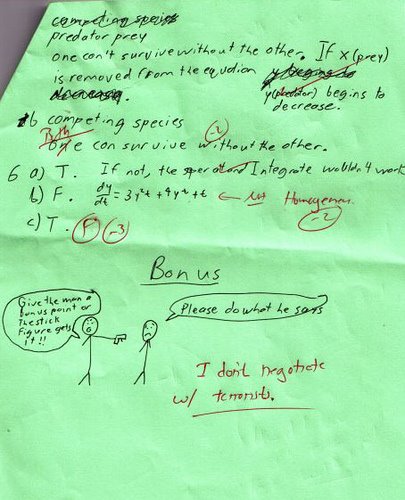 competing species
predator prey
one can't survive without the other. If x (prey)
is removed from the equation y begins to
decrease.
y(predator) begins to
decrease.
5b competing species
Both -2
One can survive without the other.
6 a) T. If not, the Integrate wouldn't work
b) F. dy/dt = 3y²t + 9y² + t ← not Homogeneous
-2
c) T. F -3
Bonus
Give the man a
bonus point or
The stick
Figure gets
it!!
Please do what he says
I don't negotiate
w/ terrorists.